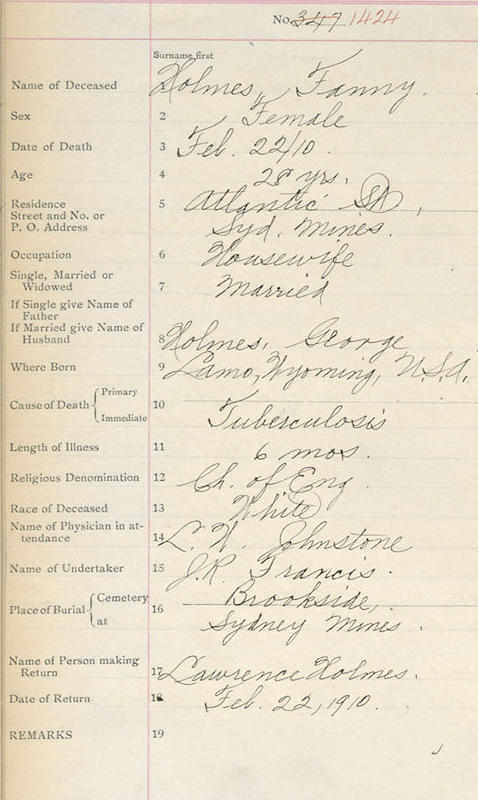 No. 347 1424
Surname first
Name of Deceased Holmes, Fanny.
Sex 2 Female
Date of Death 3 Feb. 22/10.
Age 4 28 yrs.
Residence 5 Atlantic St,
Street and No. or
P. O. Address Syd. Mines.
Occupation 6 Housewife
Single, Married or
Widowed 7 Married
If Single give Name of
Father
If Married give Name of
Husband 8 Holmes, George
Where Born 9 Lamo, Wyoming, U.S.A.
Cause of Death { Primary
Immediate 10 Tuberculosis
Length of Illness 11 6 mos.
Religious Denomination 12 Ch. of Eng
Race of Deceased 13 White
Name of Physician in at-
tendance 14 L. W. Johnstone
Name of Undertaker 15 J.R. Francis.
Place of Burial { Cemetery 16 Brookside,
at Sydney Mines.
Name of Person making
Return 17 Lawrence Holmes.
Date of Return 18 Feb. 22, 1910.
REMARKS 19